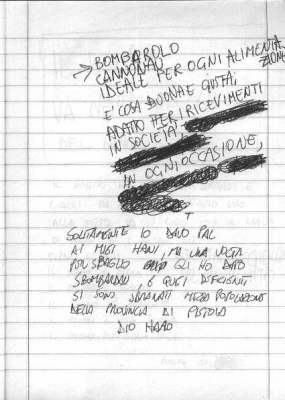 BOMBAROLO
CANNONAU
IDEALE PER OGNI ALIMENTAZIONE
E' COSA BUONA E GIUSTA;
ADATTO PER I RICEVIMENTI
IN SOCIETÀ,
IN OGNI OCCASIONE,
SOLITAMENTE IO DAVO PAL
AI MIEI HANI, MA UNA VOLTA
PER SBAGLIO GLI HO DATO
SBOMBARDAU, E QUEI DEFICIENTI
SI SONO SBRANATI MEZZA POPOLAZIONE
DELLA PROVINCIA DI PISTOIA
DIO HANO